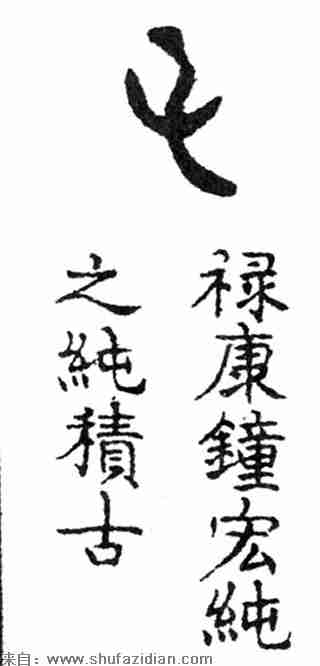 屯
祿康鐘宏純
之純積古
来自：www.shufazidian.com